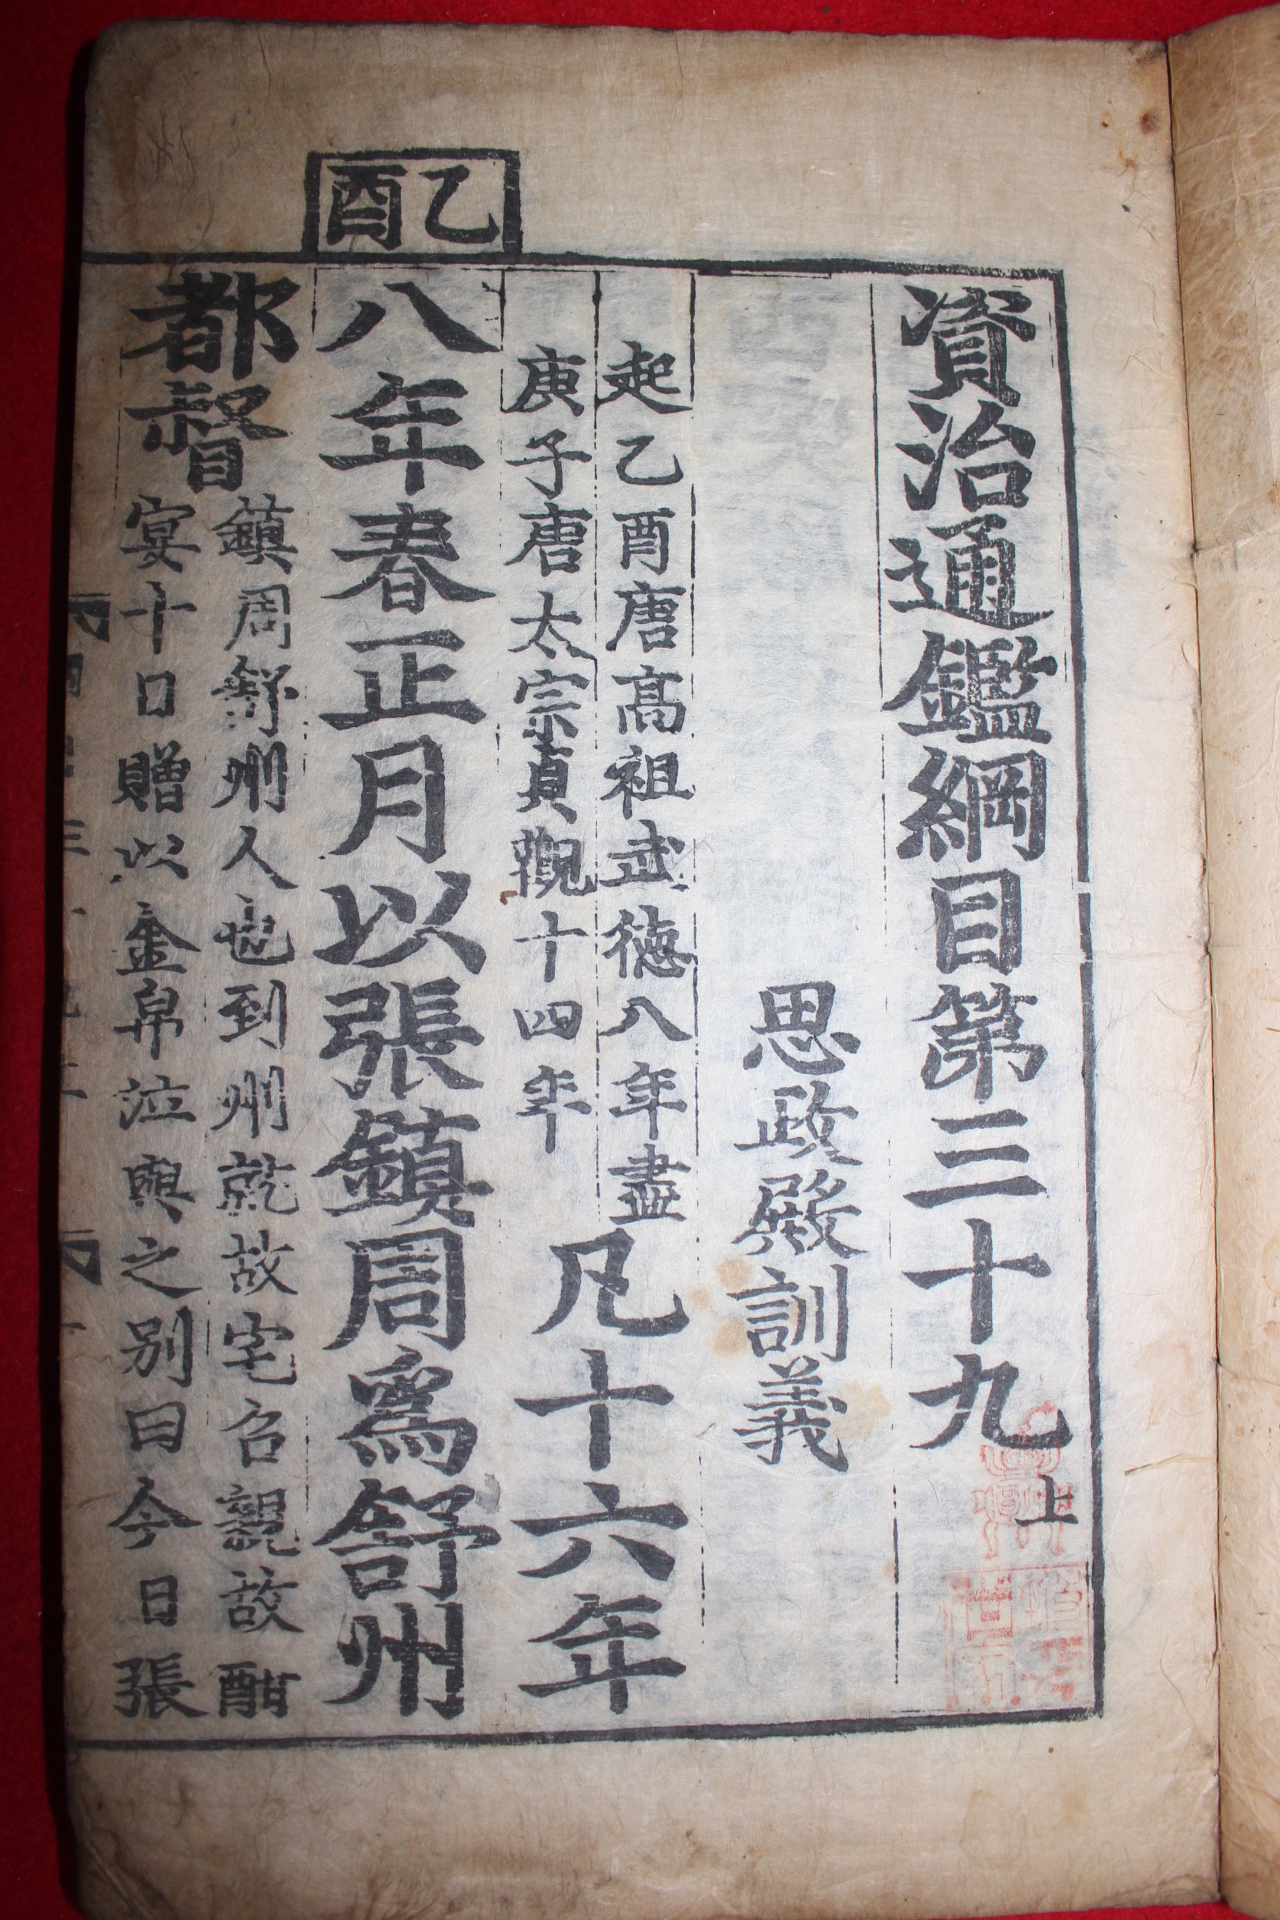 乙酉
資治通鑑綱目第三十九上
思政殿訓義
起乙酉唐高祖武德八年盡
庚子唐太宗貞觀十四年
凡十六年
八年春正月以張鎮周爲舒州
都督
鎮周舒州人也到州就故宅召親故酣
宴十日贈以金帛泣與之別曰今日張